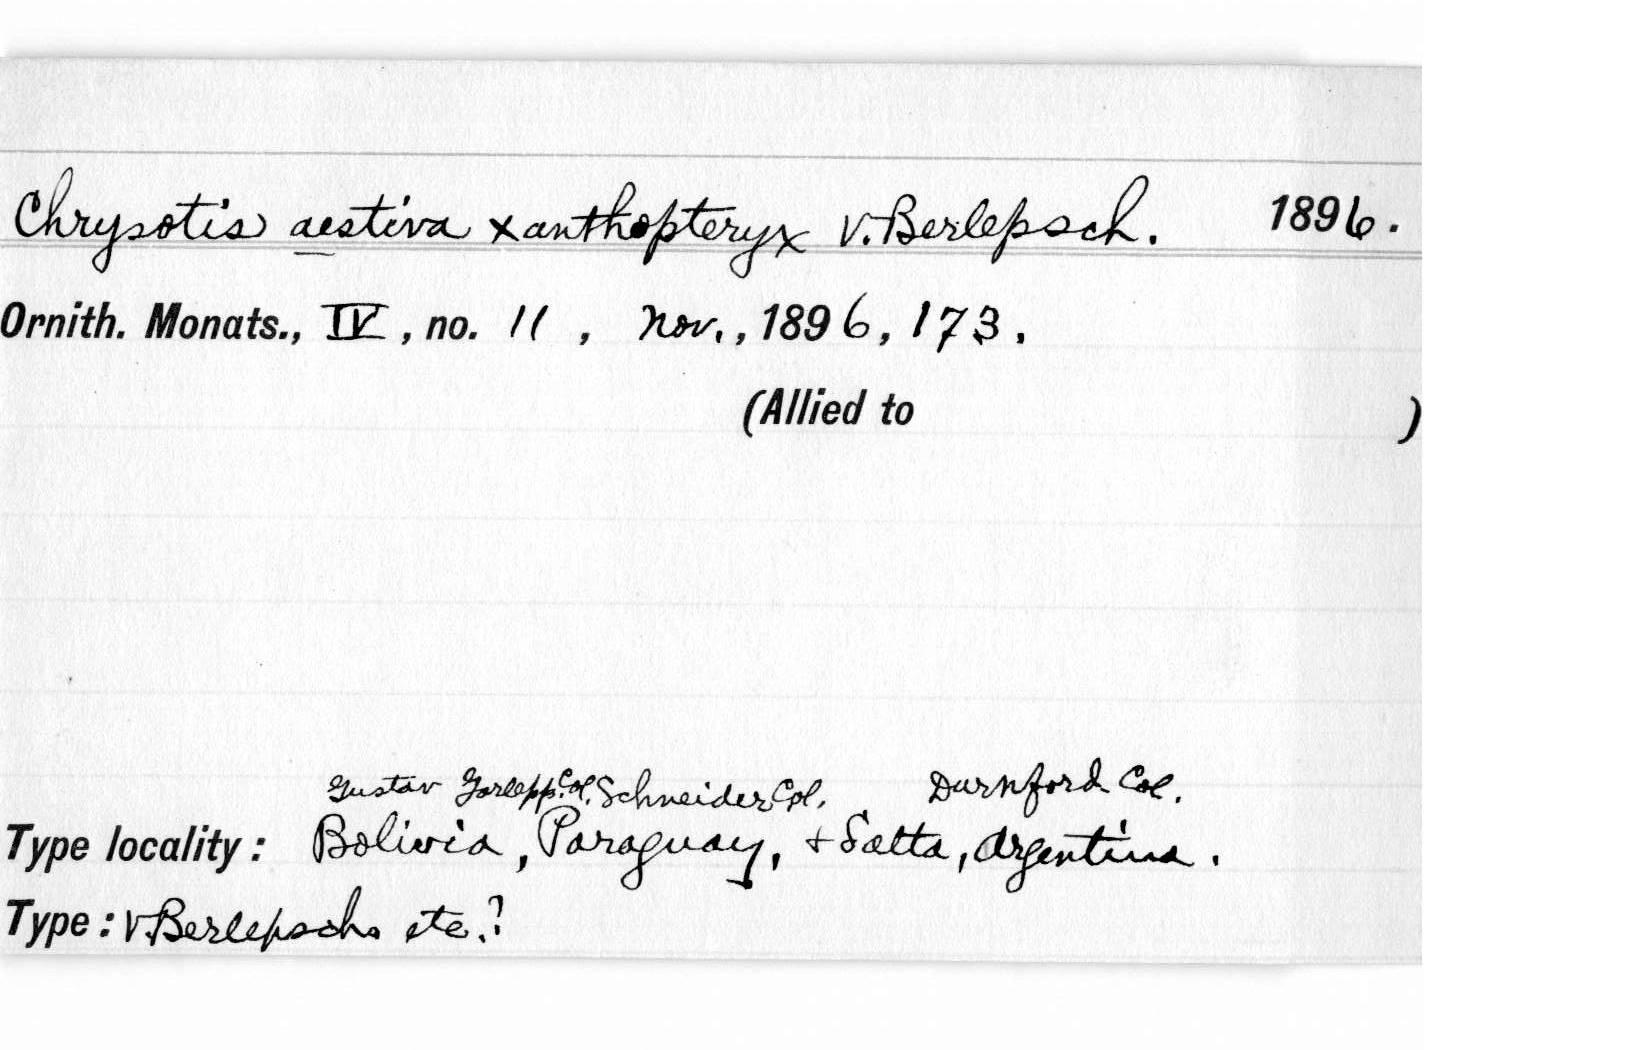 Chrysotis aestiva xanthopteryx v. Berlepsch. 1896.
Ornith. Monats., IV, no. 11, Nov., 1896, 173.
(Allied to )
Gustav Garlepp. Col. Schneider Col. Durnford Col.
Type locality: Bolivia, Paraguay, + Salta, Argentina.
Type: v. Berlepsch etc.?